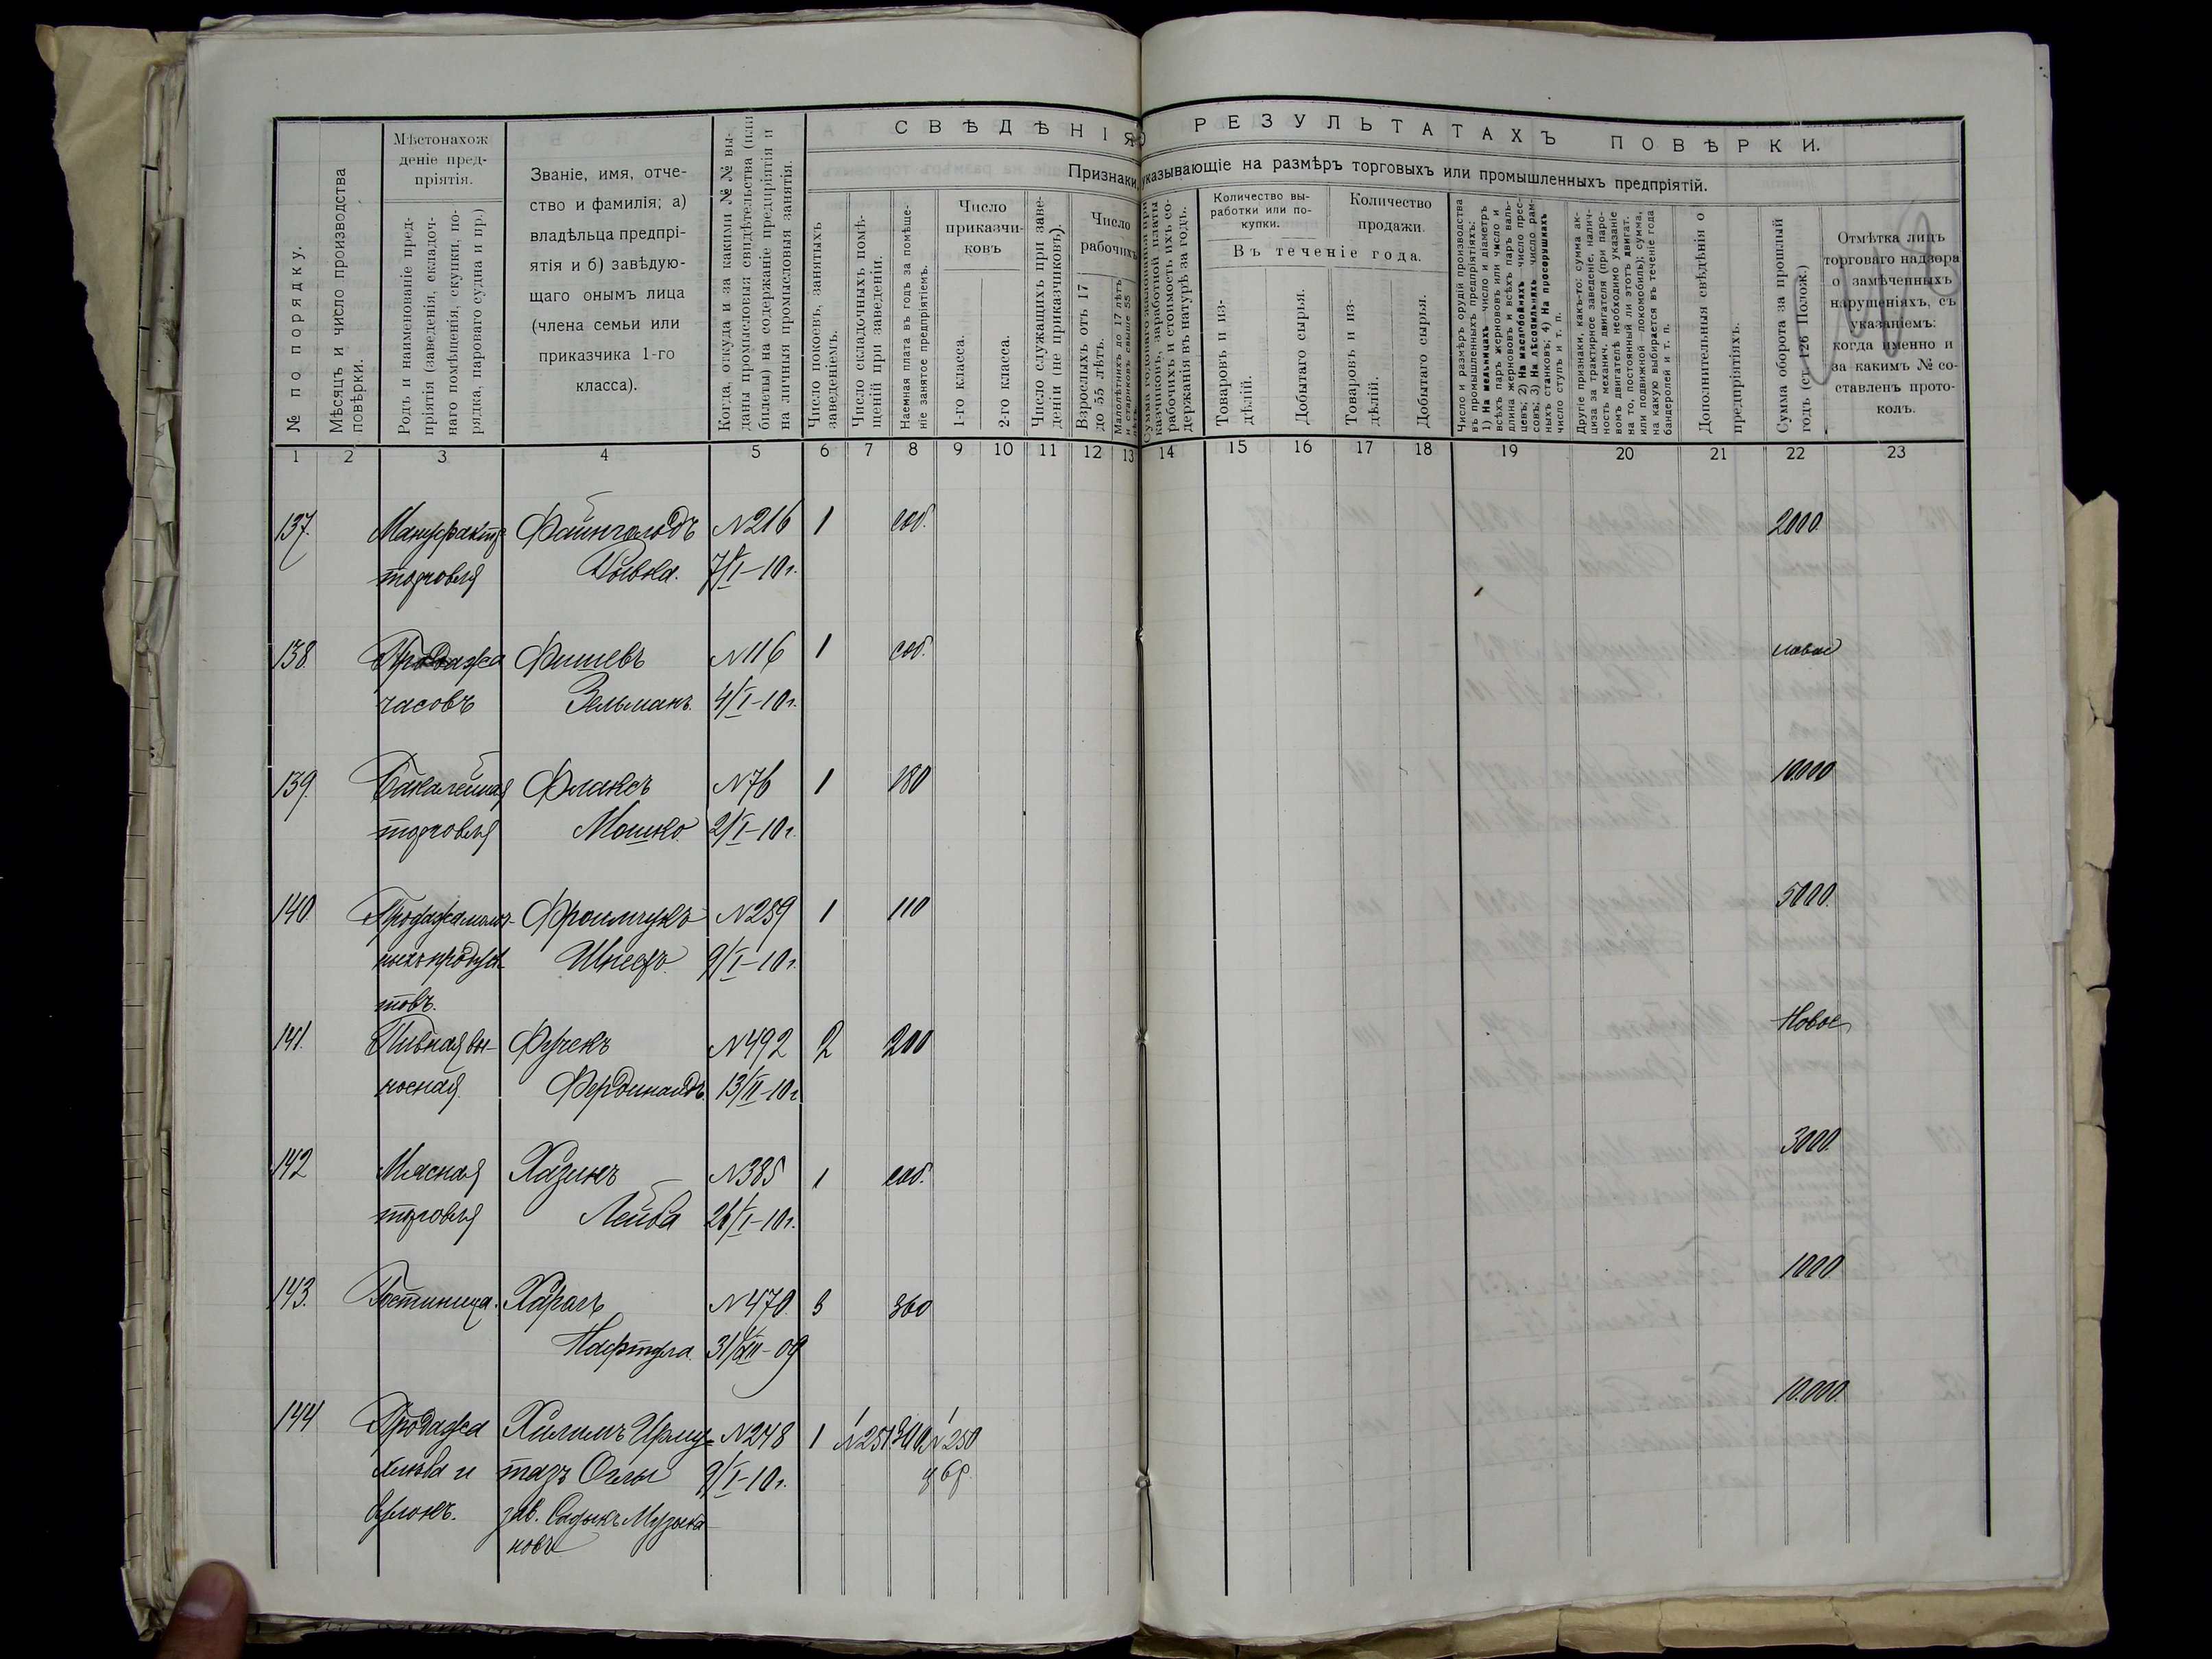 СВѢДѢНІЯ О РЕЗУЛЬТАТАХЪ ПОВѢРКИ.
Признаки, указывающіе на размѣръ торговыхъ или промышленныхъ предпріятій.
№ по порядку.
Мѣсяцъ и число производства повѣрки.
Мѣстонахож
деніе пред-
пріятія.
Родъ и наименованіе пред-
пріятія (заведенія, складоч-
наго помѣщенія, скупки, по-
рядка, парового судна и пр.)
Званіе, имя, отче-
ство и фамилія; а)
владѣльца предпрі-
ятія и б) завѣдую-
щаго онымъ лица
(члена семьи или
приказчика 1-го
класса).
Когда, откуда и за какими №№ вы-
даны промысловыя свидѣтельства (или
билеты) на содержаніе предпріятія и
на личныя промысловыя занятія.
Число покоевъ, занятыхъ
заведеніемъ.
Число складочныхъ помѣ-
щеній при заведеніи.
Наемная плата въ годъ за помѣще-
ніе занятое предпріятіемъ.
Число
приказчи-
ковъ
1-го класса.
2-го класса.
Число служащихъ при заве-
деніи (не приказчиковъ).
Число
рабочихъ
Взрослыхъ отъ 17
до 55 лѣтъ.
Малолѣтнихъ до 17 лѣтъ
и стариковъ свыше 55
лѣтъ.
Сумма годового жалованья при-
казчиковъ, заработной платы
рабочихъ и стоимость ихъ со-
держанія въ натурѣ за годъ.
Количество вы-
работки или по-
купки.
Количество
продажи.
Въ теченіе года.
Товаровъ и из-
дѣлій.
Добытаго сырья.
Товаровъ и из-
дѣлій.
Добытаго сырья.
Число и размѣръ орудій производства
въ промышленныхъ предпріятіяхъ:
1) На мельницахъ число и діаметръ
всѣхъ паръ жернововъ или число и
длина жернововъ и всѣхъ паръ валь-
цевъ; 2) На маслобойняхъ число прес-
совъ; 3) На лѣсопильняхъ число рам-
ныхъ станковъ; 4) На просорушкахъ
число ступъ и т. п.
Другіе признаки, какъ-то: сумма ак-
циза за трактирное заведеніе, налич-
ность механич. двигателя (при паро-
вомъ двигателѣ необходимо указаніе
на то, постоянный ли этотъ двигат.
или подвижной—локомобиль); сумма,
на какую выбирается въ теченіе года
бандеролей и т. п.
Дополнительныя свѣдѣнія о
предпріятіяхъ.
Сумма оборота за прошлый
годъ (ст. 126 Полож.)
Отмѣтка лицъ
торговаго надзора
о замѣченныхъ
нарушеніяхъ, съ
указаніемъ:
когда именно и
за какимъ № со-
ставленъ прото-
колъ.
1 2 3 4 5 6 7 8 9 10 11 12 13 14 15 16 17 18 19 20 21 22 23
137. Мануфакт. Файнгольдъ №216 1 соб. 2000.
торговля Рывка. 7/I–10 г.
138. Продажа Фишевъ №116 1 соб. новое
часовъ Зельманъ. 4/I–10 г.
139. Бакалейная Флаксъ №76 1 180 10.000
торговля Мошко. 2/I–10 г.
140. Продажа молоч- Фроимчукъ №259 1 110 5000.
ныхъ продук-
товъ. 9/I–10 г.
141. Пивная вы- Фучекъ №492 2 200 Новое
носная. Фердинандъ. 13/II–10 г.
142 Мясная Хазинъ №385 1 соб. 3000.
торговля Лейба 26/I–10 г.
143. Гостиница. Харагъ №470. 3 360 1000.
Нафтула. 31/XII–09
144 Продажа №248 1 №251 300 №250 10.000.
хлѣба и Оглы 9/I–10 г.
булокъ. зав. Садыкъ Музыка
новъ